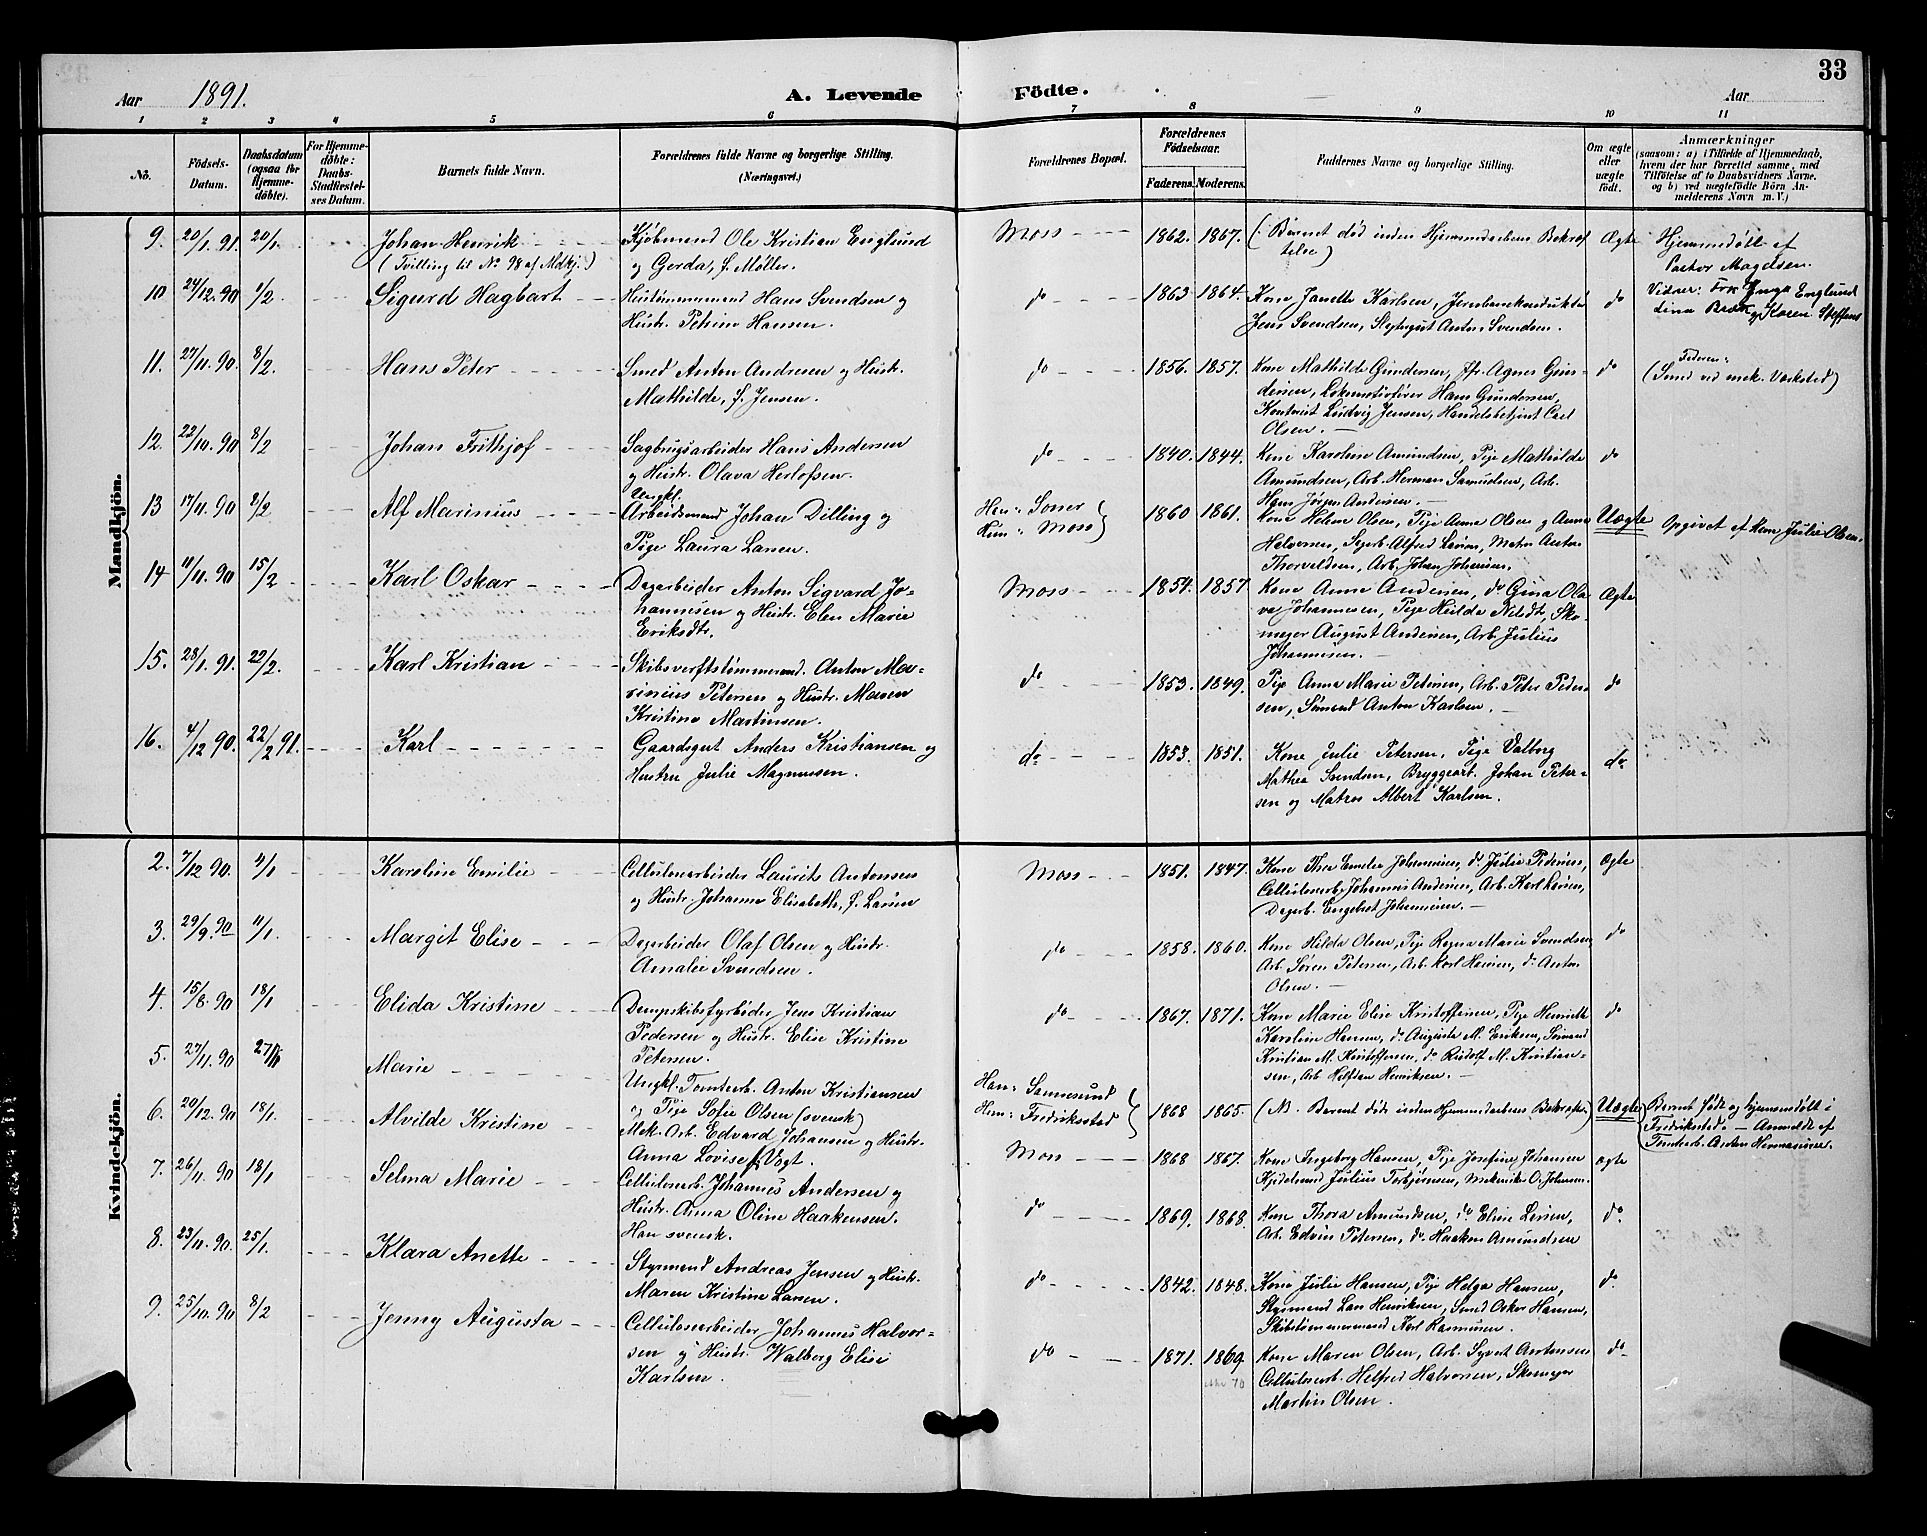 33
Aar 1891. A. Levende Födte. Aar
1 2 3 4 5 6 7 8 9 10 11
No.
Födsels-Datum.
Daabsdatum (ogsaa for Hjemme-döbte).
For Hjemme-döbte: Daabs-Stadfæstel-ses Datum.
Barnets fulde Navn.
Forældrenes fulde Navne og borgerlige Stilling.
(Næringsvei.)
Forældrenes Bopæl.
Forældrenes Födselsaar.
Faderens. Moderens.
Faddernes Navne og borgerlige Stilling.
Om ægte eller uægte födt.
Anmærkninger
(saasom: a) i Tilfælde af Hjemmedaab,
hvem der har forrettet samme, med
Tilföielse af to Daabsvidners Navne,
og b) ved uægtefödte Börn An-
melderens Navn m. V.)
Mandkjön.
9. 20/1. 91. 20/1. Johan Henrik
(Tvilling til No 98 af Mdkj.)
Kjöbmand Ole Kristian Englund
og Gerda, f. Møller.
Moss 1862. 1867. (: Barnet död inden Hjemmedaabens Bekræf
telse) Ægte
Hjemmedöbt af
Pastor Magelsen.
Vidner: Frk Inga Englund
Lina Brek og Karen Steffens
10 24/12. 90 1/2. Sigurd Hagbart
Hustömmermand Hans Svendsen og
Hustr. Petrine Hansen.
do 1863 1864. Kone Janette Karlsen, Jernbanekonduktör
Jens Svendsen, Anton Svendsen. do
11. 27/11. 90. 8/2. Hans Peter
Smed Anton Andresen og Hustr.
Mathilde, f. Jensen.
do 1856. 1857. Kone Mathilde Gundersen, Fr. Agnes Gun-
dersen, Lokomotivförer Hans Gundersen,
Kontorist Ludvig Jensen, Handelsbetjent Carl
Olsen. do
Faderen:
(Smed ved mek. Værksted)
12. 22/10. 90 8/2 Johan Frithjof
Sagbrugsarbeider Hans Andersen
og Hustr. Olava Herlofsen.
do 1840. 1844. Kone Karoline Amundsen, Pige Mathilde
Amundsen, Arb. Herman Samuelsen, Arb.
Hans Jørgen Andersen. do
13 17/11. 90 8/2 Alf Marinius
Ungkl.
Arbeidsmand Johan Dilling og
Pige Laura Larsen.
Han: Soner
Hun: Moss
1860 1861. Kone Helene Olsen, Pige Anna Olsen og Anna
Halvorsen, Alfred Matros Anton
Thorvaldsen, Arb. Johan Johansen. Uægte
Opgivet af Kone Julie Olsen.
14 11/11. 90 15/2 Karl Oskar
Dagarbeider Anton Sigvard Jo-
hannesen og Hustr. Elen Marie
Eriksdtr.
Moss 1854. 1857 Kone Anna Andersen, do Gina Ola
va Johannesen, Pige Hulda Sko-
mager August Andersen, Arb. Julius
Johannesen. Ægte
15. 28/1. 91. 22/2. Karl Kristian
Skibsverftstömmermd. Anton Ma-
rinius Petersen og Hustr. Maren
Kristine Martinsen.
do 1853. 1849. Pige Anna Marie Petersen, Arb. Peter Peder-
sen, Sömand Anton Karlsen. do
16. 4/12 90. 22/2 91. Karl
Gaardsgut Anders Kristiansen og
Hustru Julie Magnussen.
do 1853. 1851. Kone Julie Petersen, Pige Valborg
Mathea Svendsen, Bryggearb. Johan Peter-
sen og Matros Albert Karlsen. do
Kvindekjön.
2. 7/12 90. 4/1 Karoline Emilie
Cellulosearbeider Laurits Antonsen
og Hustr. Johanne Elisabeth, f. Larsen
Moss 1851. 1847. Kone Thea Emelie Johannesen, do Julie Pedersen,
Cellulosearb. Johannes Andersen, Arb. Karl Larsen,
Dagarb. Engebret Johannesen. Ægte
3. 29/9. 90 11/1. Margit Elise
Dagarbeider Olaf Olsen og Hustr.
Amalie Svendsen.
do 1858. 1860. Kone Hilda Olsen, Pige Ragna Marie Svendsen,
Arb. Sören Petersen, Arb. Karl Hansen, do Anton
Olsen. do
4. 15/8. 90 18/1 Elida Kristine
Dampskibsfyrböder Jens Kristian
Pedersen og Hustr. Elise Kristine
Petersen.
do 1867. 1871. Kone Marie Elise Kristoffersen, Pige Henriette
Karoline Hansen, do Augusta M. Eriksen, Sömand
Kristian M. Kristoffersen, do Rudolf M. Kristian-
sen, Arb Halfdan Henriksen. do
5. 27/11. 90 Marie
Ungkl. Tomtearb. Anton Kristiansen
og Pige Sofie Olsen (svensk)
Han: Sannesund
Hun: Fredriksstad
1868 1865. (N. Barnet döde inden Hjemmedaabens Bekræft.) Uægte
Barnet född og hjemmedöbt i
Fredriksstad. — Anmeldt af
Tomtearb. Anton Hermansen.
6. 20/12. 90 18/1. Alvilde Kristine
Mek. Arb. Edvard Johansen og Hustr.
Anna Lovise f. Vogt.
Moss 1868 1867. Kone Ingeborg Hansen, Pige Josefine Johansen
Kjedelsmed Julius Torbjörnsen, Mekaniker O. Johansen. ægte
7. 26/11. 90 18/1 Selma Marie
Cellulosearb. Johannes Andersen og
Hustr. Anna Oline Haakensen.
Han svensk.
do 1869. 1868. Kone Thora Amundsen, do Elise Larsen,
Arb. Edvin Petersen, do Haakon Amundsen do
8. 23/11. 90. 25/1. Klara Anette
Styrmand Andreas Jensen og Hustr.
Maren Kristine Larsen.
do 1842. 1848. Kone Julie Hansen, Pige Helga Hansen,
Styrmand Lars Henriksen, Smed Oskar Hansen,
Skibstömmermand Karl Rasmussen. do
9. 25/10. 90 8/2 Jenny Augusta
Cellulosearbeider Johannes Halvor-
sen og Hustr. Walborg Elise
Karlsen.
do 1871. 1869 Kone Maren Olsen, Arb. Syvert Antonsen
70 Cellulosearb. Helfred Halvorsen, Skomager
Martin Olsen. do